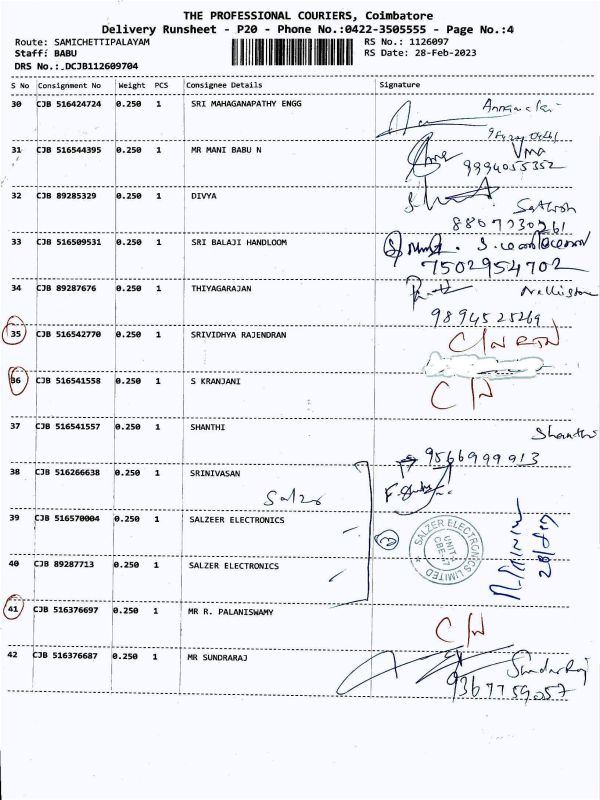 THE PROFESSIONAL COURIERS, Coimbatore
Delivery Runsheet - P20 - Phone No.:0422-3505555 - Page No.:4
Route: SAMICHETTIPALAYAM RS No.: 1126097
Staff: BABU RS Date: 28-Feb-2023
DRS No.:_DCJB112609704
S No Consignment No Weight PCS Consignee Details Signature
30 CJB 516424724 0.250 1 SRI MAHAGANAPATHY ENGG
31 CJB 516544395 0.250 1 MR MANI BABU N
9994055352
32 CJB 89285329 0.250 1 DIVYA
Sathish
8807230261
33 CJB 516509531 0.250 1 SRI BALAJI HANDLOOM
7502954702
34 CJB 89287676 0.250 1 THIYAGARAJAN
9894525269
35 CJB 516542770 0.250 1 SRIVIDHYA RAJENDRAN
36 CJB 516541558 0.250 1 S KRANJANI
37 CJB 516541557 0.250 1 SHANTHI
Shanthi
9566999913
38 CJB 516266638 0.250 1 SRINIVASAN
Salzer
39 CJB 516570004 0.250 1 SALZEER ELECTRONICS
3
SALZER ELECTRONICS LIMITED
UNIT-1
CBE-47
40 CJB 89287713 0.250 1 SALZER ELECTRONICS
41 CJB 516376697 0.250 1 MR R. PALANISWAMY
42 CJB 516376687 0.250 1 MR SUNDRARAJ
SundarRaj
9367759057